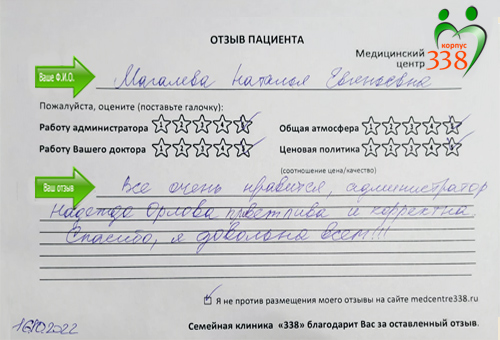 ОТЗЫВ ПАЦИЕНТА
корпус
Медицинский
центр 338
Ваше Ф.И.О. Магалева Наталья Евгеньевна
Пожалуйста, оцените (поставьте галочку):
Работу администратора 1 2 3 4 5 Общая атмосфера 1 2 3 4 5
Работу Вашего доктора 1 2 3 4 5 Ценовая политика 1 2 3 4 5
(соотношение цена/качество)
Ваш отзыв Все очень нравится, администратор
Надежда Орлова приветлива и корректна
Спасибо, я довольна всем!!!
Я не против размещения моего отзывы на сайте medcentre338.ru
16.10.2022 Семейная клиника «338» благодарит Вас за оставленный отзыв.